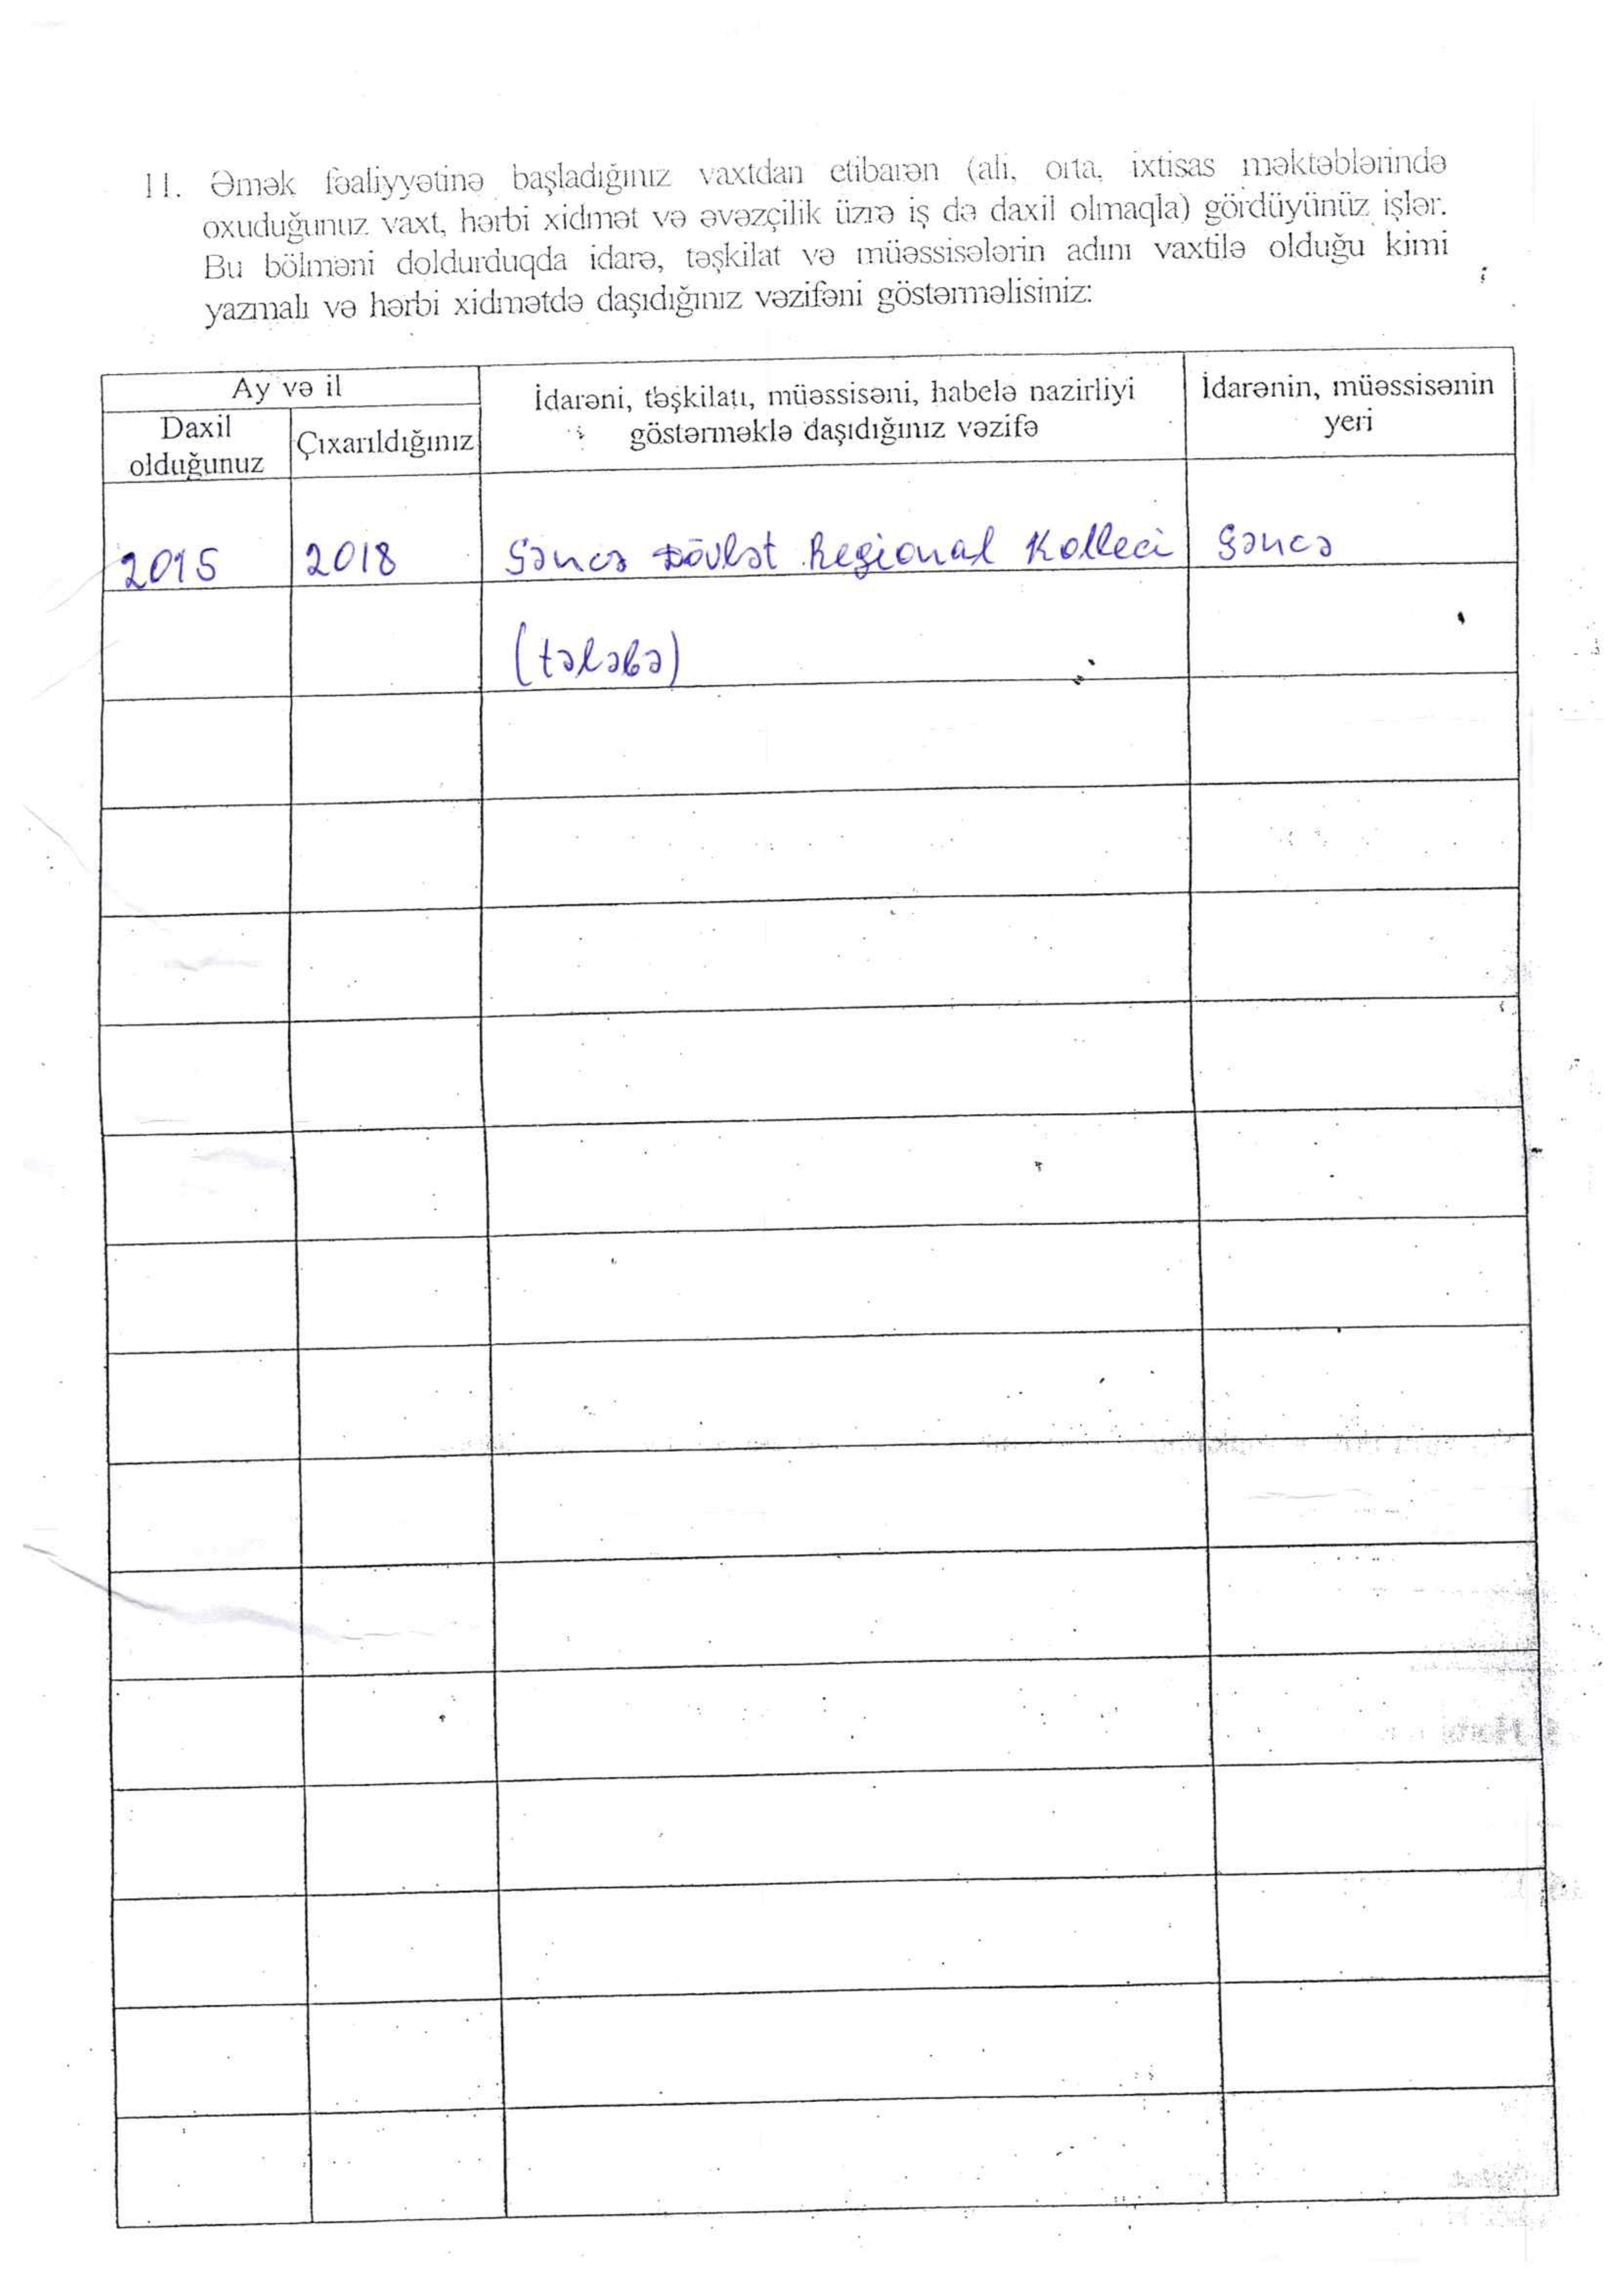 11. Əmək fəaliyyətinə başladığınız vaxtdan etibarən (ali, orta, ixtisas məktəblərində
oxuduğunuz vaxt, hərbi xidmət və əvəzçilik üzrə iş də daxil olmaqla) gördüyünüz işlər.
Bu bölməni doldurduqda idarə, təşkilat və müəssisələrin adını vaxtilə olduğu kimi
yazmalı və hərbi xidmətdə daşıdığınız vəzifəni göstərməlisiniz:
Ay və il
Daxil
olduğunuz
Çıxarıldığınız
İdarəni, təşkilatı, müəssisəni, habelə nazirliyi
göstərməklə daşıdığınız vəzifə
İdarənin, müəssisənin
yeri
2015 2018 Gəncə Dövlət Regional Kolleci Gəncə
(tələbə)